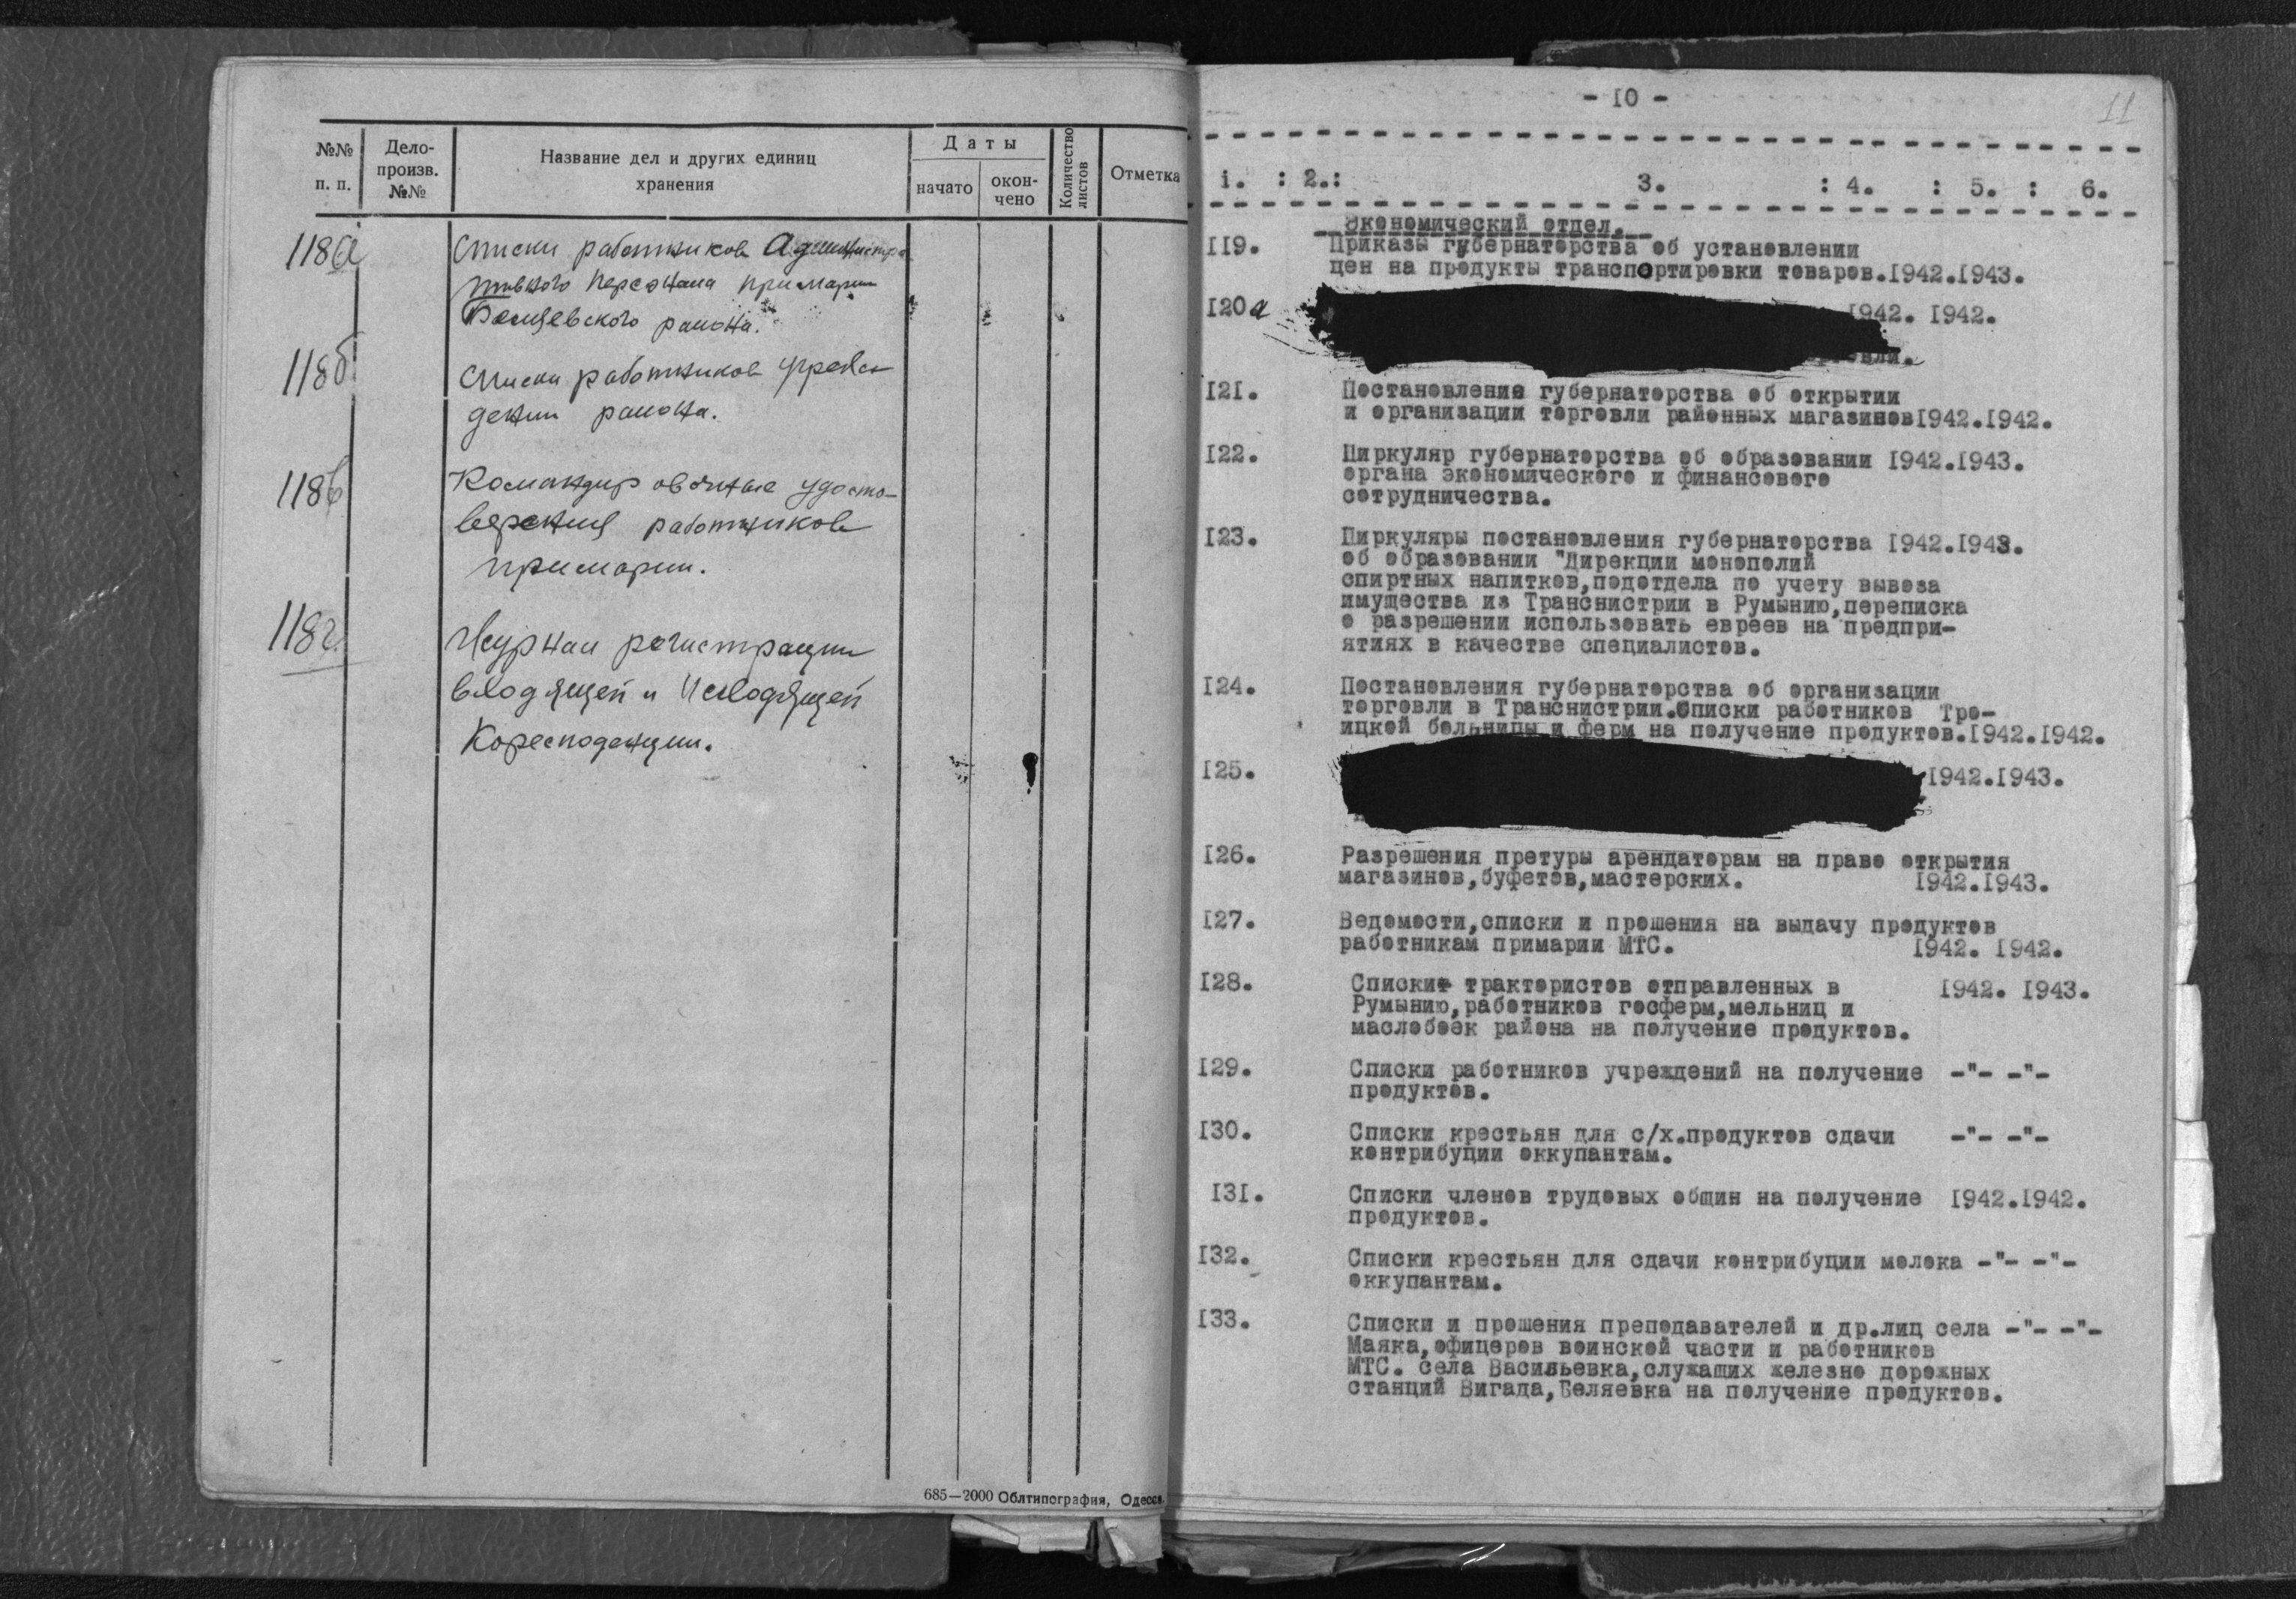 №№ п. п.
Дело-произв. №№
Название дел и других единиц
хранения
Даты
начато
окон-чено
Количество листов
Отметка
118а
Списки работников Администра
тивного персонала примарии
района.
118б
Списки работников учреж
дений района.
118в
Командировочные удосто-
верения работников
примарии.
118г.
Журнал регистрации
входящей и исходящей
Коресподенции.
685—2000 Облтипография, Одесса
- I0 -
11
i. : 2.: 3. : 4. : 5. : 6.
Экономический отдел.
II9. Приказы губернаторства об установлении
цен на продукты транспортировки товаров.I942.I943.
I20а I942. I942.
I2I. Постановление губернаторства об открытии
и организации торговли районных магазиновI942.I942.
I22. Циркуляр губернаторства об образовании I942.I943.
органа экономического и финансового
сотрудничества.
I23. Циркуляры постановления губернаторства I942.I943.
об образовании "Дирекции монополий
спиртных напитков,подотдела по учету вывоза
имущества из Транснистрии в Румынию,переписка
о разрешении использовать евреев на предпри-
ятиях в качестве специалистов.
I24. Постановления губернаторства об организации
торговли в Транснистрии.Списки работников Тро-
ицкой больницы и ферм на получение продуктов.I942.I942.
I25. I942.I943.
I26. Разрешения претуры арендаторам на право открытия
магазинов,буфетов,мастерских. I942.I943.
I27. Ведомости,списки и прошения на выдачу продуктов
работникам примарии МТС. I942. I942.
I28. Списки трактористов отправленных в I942. I943.
Румынию,работников госферм,мельниц и
маслобоек района на получение продуктов.
I29. Списки работников учреждений на получение -"- -"-
продуктов.
I30. Списки крестьян для с/х.продуктов сдачи -"- -"-
контрибуции оккупантам.
I3I. Списки членов трудовых общин на получение I942.I942.
продуктов.
I32. Списки крестьян для сдачи контрибуции молока -"- -"-
оккупантам.
I33. Списки и прошения преподавателей и др.лиц села -"- -"-
Маяка,офицеров воинской части и работников
МТС. села Васильевка,служащих железно дорожных
станций Вигада,Беляевка на получение продуктов.